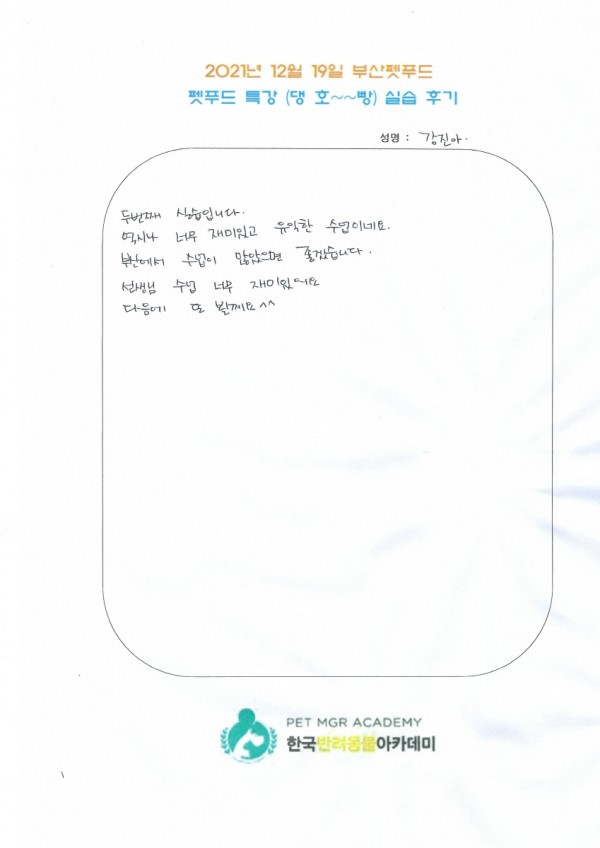 2021년 12월 19일 부산펫푸드
펫푸드 특강 (댕 호~~빵) 실습 후기
성명 : 강진아.
두번째 실습입니다.
역시나 너무 재미있고 유익한 수업이네요.
부산에서 수업이 많았으면 좋겠습니다.
선생님 수업 너무 재미있어요
다음에 또 봘께요^^
PET MGR ACADEMY
한국반려동물아카데미